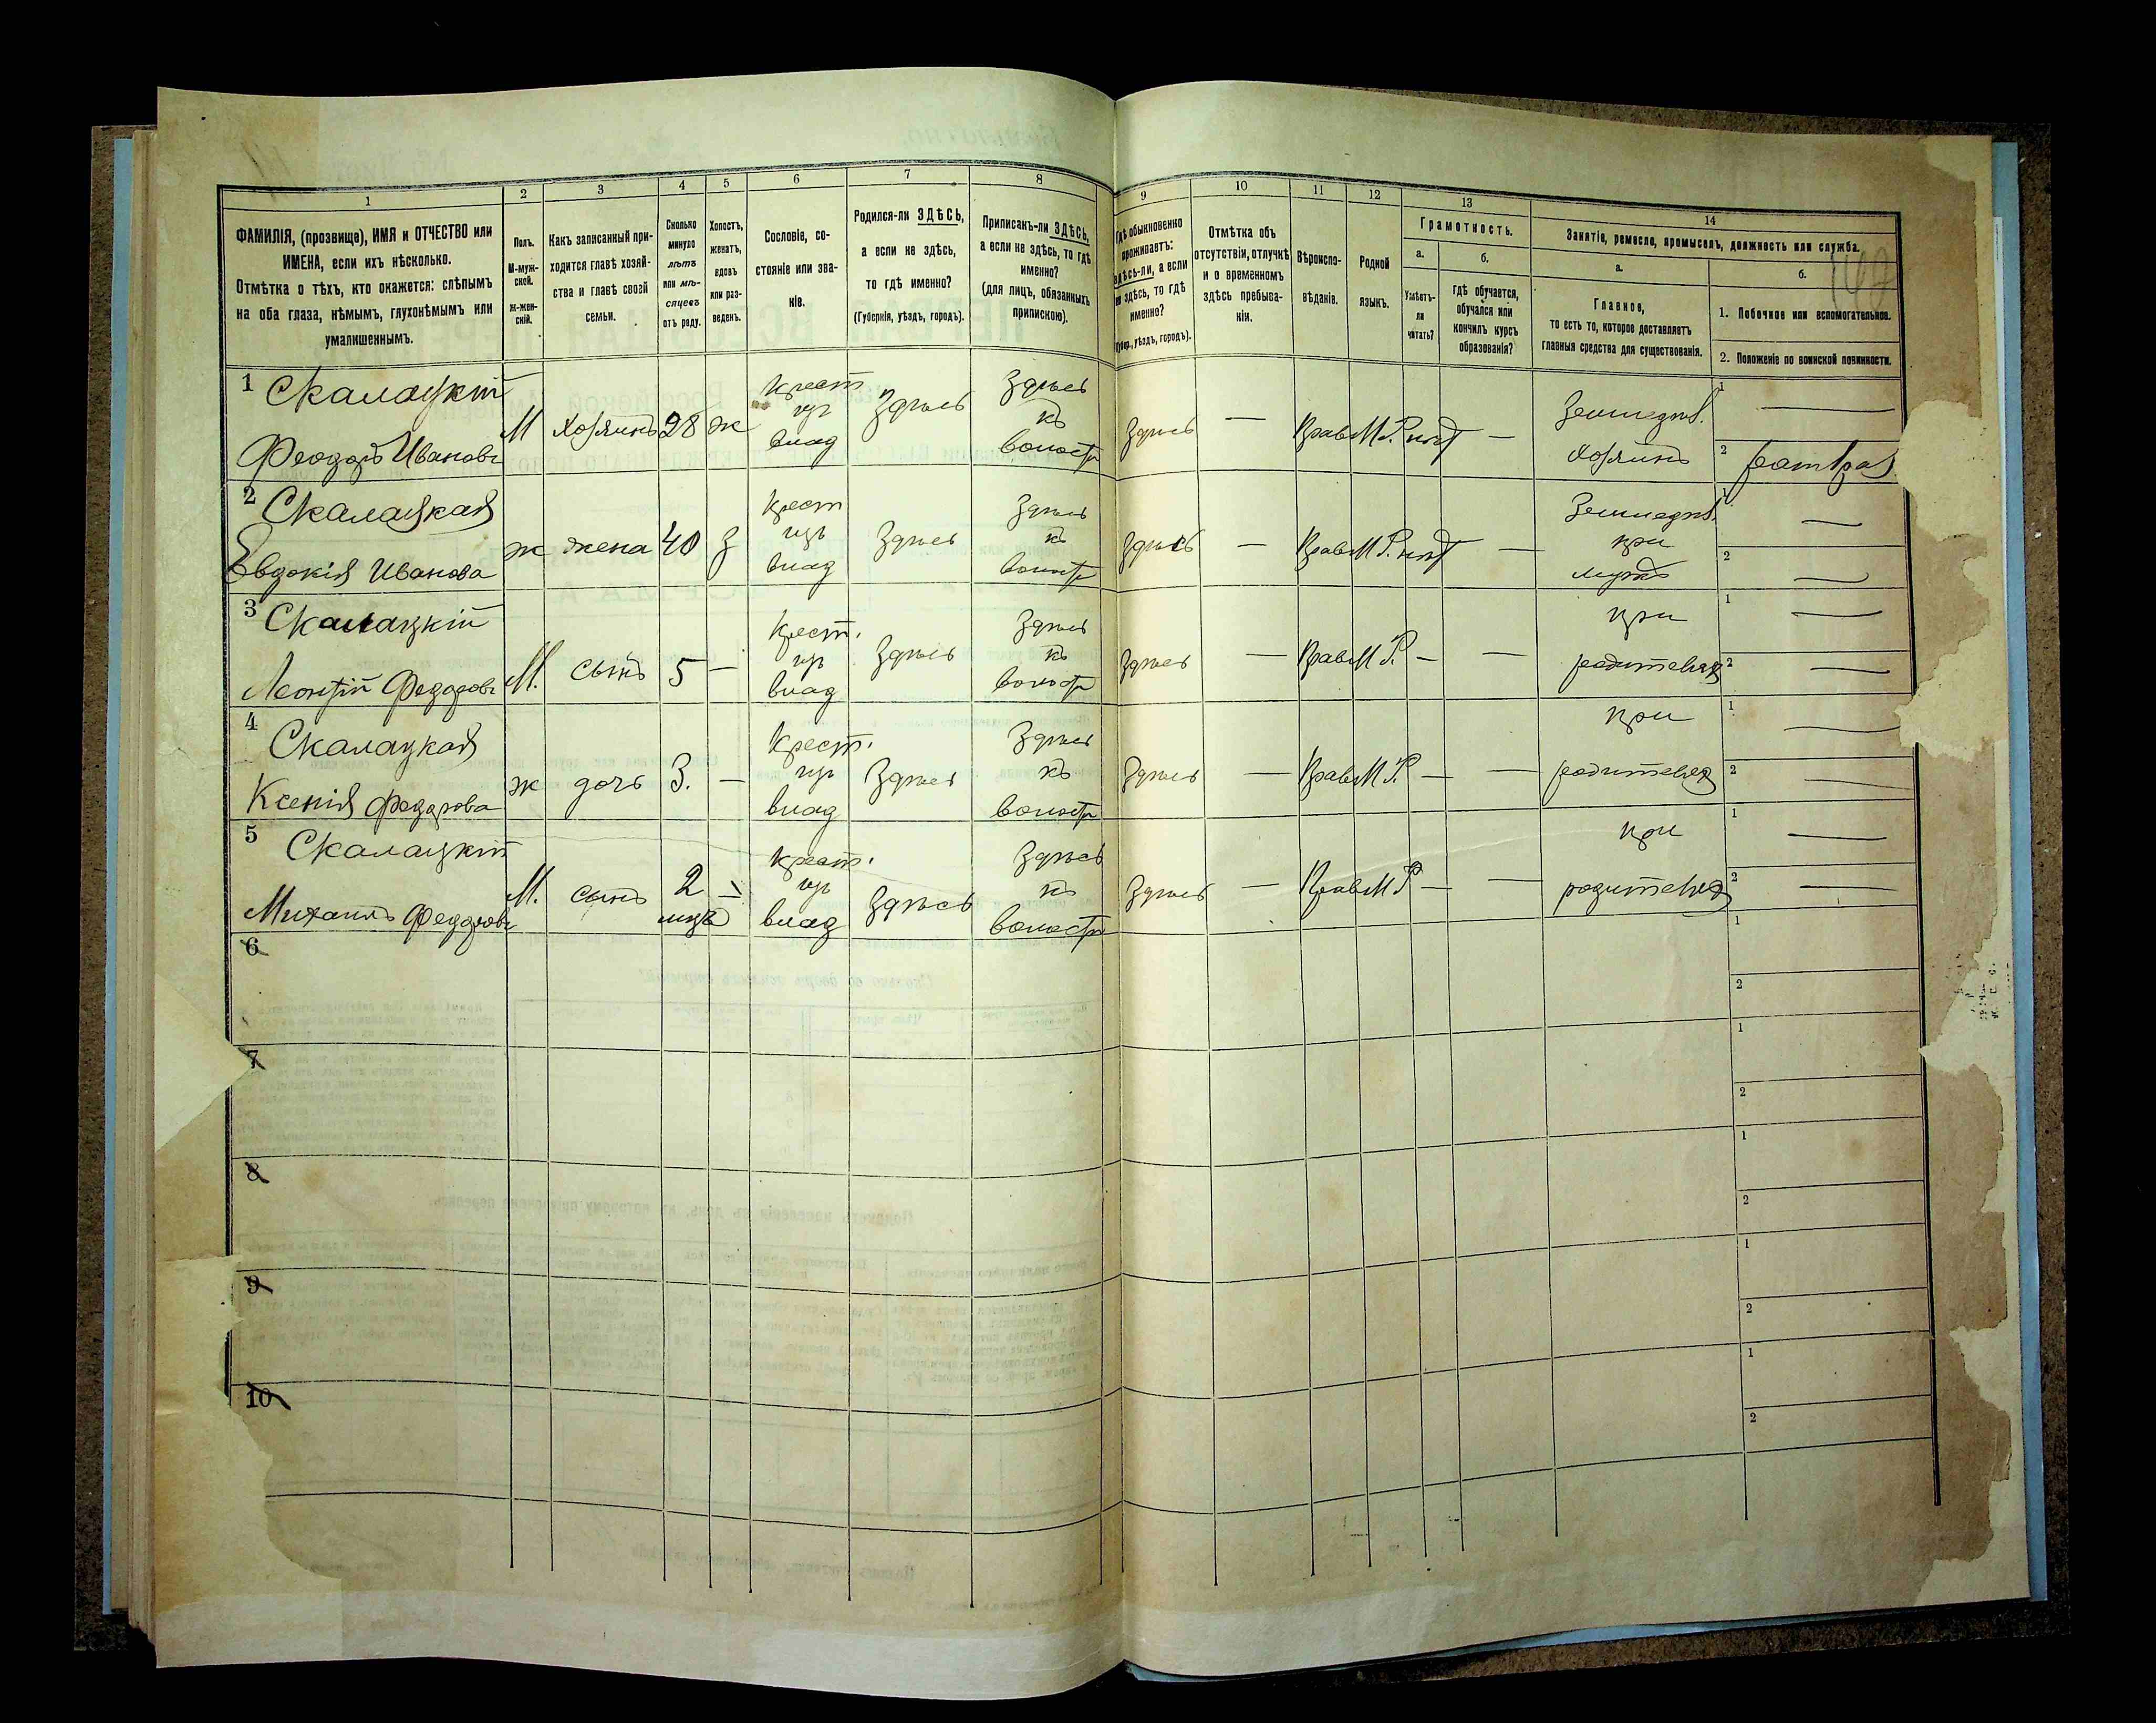 1 2 3 4 5 6 7 8 9 10 11 12 13 14
ФАМИЛІЯ, (прозвище), ИМЯ и ОТЧЕСТВО или
ИМЕНА, если ихъ нѣсколько.
Отмѣтка о тѣхъ, кто окажется: слѣпымъ
на оба глаза, нѣмымъ, глухонѣмымъ или
умалишеннымъ.
Полъ.
М-муж-
ской.
Ж-жен-
скій.
Какъ записанный при-
ходится главѣ хозяй-
ства и главѣ своей
семьи.
Сколько
минуло
лѣтъ
или мѣ-
сяцевъ
отъ роду.
Холостъ,
женатъ,
вдовъ
или раз-
веденъ.
Сословіе, со-
стояніе или зва-
ніе.
Родился-ли ЗДѢСЬ,
а если не здѣсь,
то гдѣ именно?
(Губернія, уѣздъ, городъ).
Приписанъ-ли ЗДѢСЬ,
а если не здѣсь, то гдѣ
именно?
(для лицъ, обязанныхъ
припискою).
Гдѣ обыкновенно
проживаетъ:
здѣсь-ли, а если
не здѣсь, то гдѣ
именно?
(Губер., уѣздъ, городъ).
Отмѣтка объ
отсутствіи, отлучкѣ
и о временномъ
здѣсь пребыва-
ніи.
Вѣроиспо-
вѣданіе.
Родной
языкъ.
Грамотность.
а.
Умѣетъ-
ли
читать?
б.
гдѣ обучается,
обучался или
кончилъ курсъ
образованія?
Занятіе, ремесло, промыселъ, должность или служба.
а.
Главное,
то есть то, которое доставляетъ
главныя средства для существованія.
б.
1. Побочное или вспомогательное.
2. Положеніе по воинской повинности.
1 Скалацкій
Феодоръ Ивановъ
М хозяинъ 28 ж
Крест
изъ
влад
Здѣсь
Здѣсь
къ
волости
Здѣсь — Прав М.Р. нѣтъ —
Земледѣл.
хозяинъ
1 —
2
2 Скалацкая
Евдокія Иванова
ж жена 40 з
Крест
изъ
влад
Здѣсь
Здѣсь
къ
волости
Здѣсь — Прав М.Р. нѣтъ —
Земледѣл.
при
мужѣ
1 —
2 —
3 Скалацкій
Леонтій Федоровъ
М. сынъ 5 —
Крест.
изъ
влад
Здѣсь
Здѣсь
къ
волости
Здѣсь — Прав М.Р. — —
при
родителях
1 —
2 —
4 Скалацкая
Ксенія Федорова
ж дочь 3. —
Крест.
изъ
влад
Здѣсь
Здѣсь
къ
волости
Здѣсь — Прав М.Р. — —
при
родителях
1 —
2 —
5 Скалацкій
Михаилъ Федоровъ
М. сынъ 2 —
мцв
Крест.
изъ
влад
Здѣсь
Здѣсь
къ
волости
Здѣсь — Прав М.Р. — —
при
родителях
1 —
2 —
6
1
2
7
1
2
8
1
2
9
1
2
10
1
2